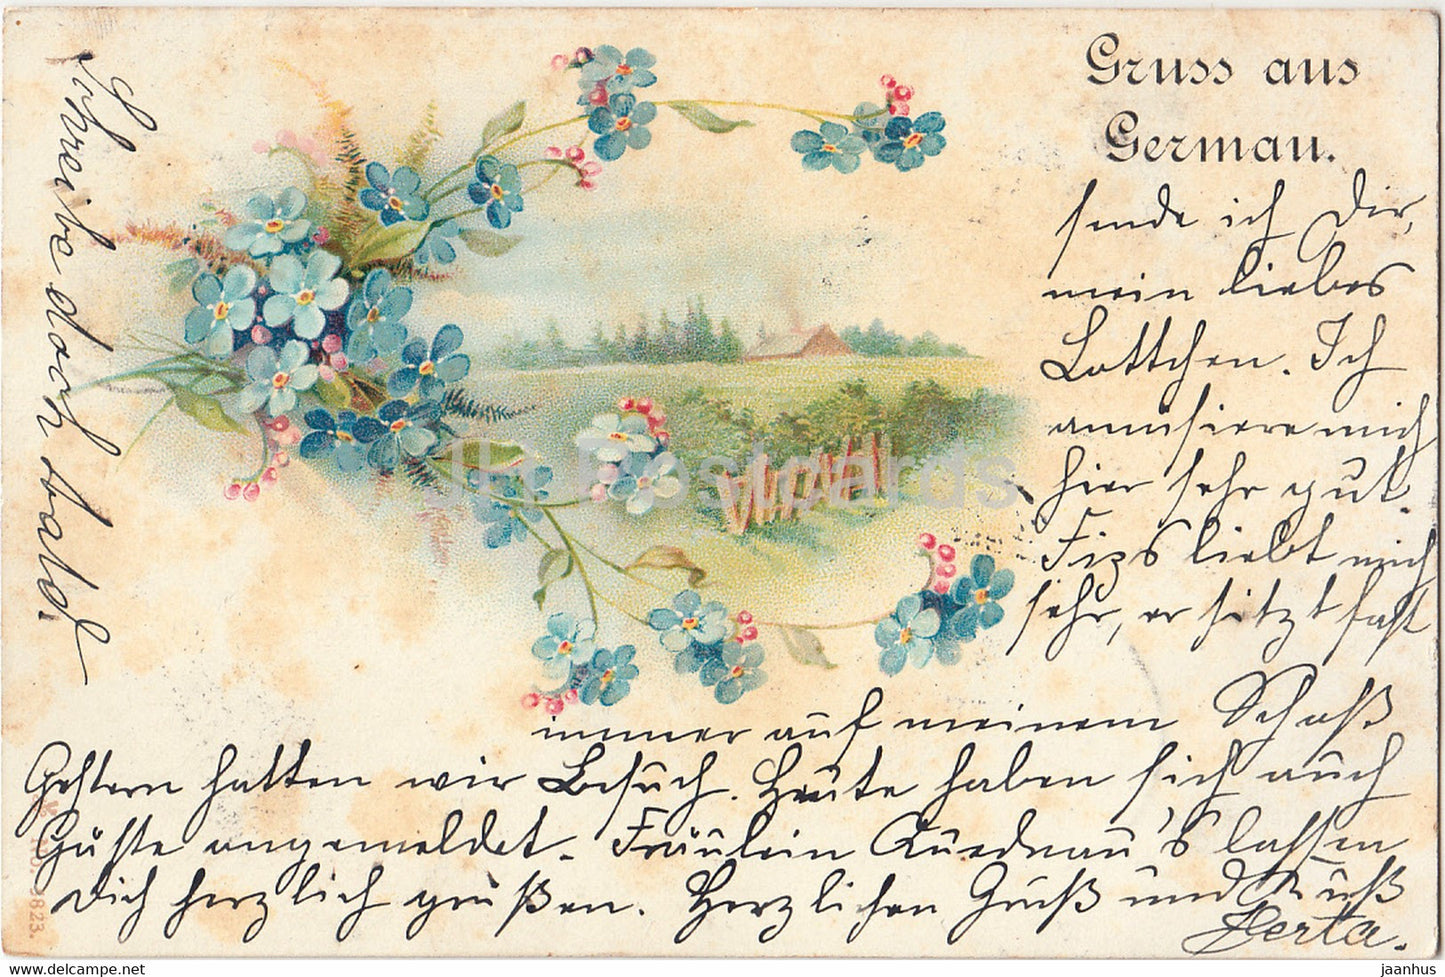 Gruss aus
Germau.
sende ich Dir,
mein liebes
Lottchen. Ich
amüsiere mich
hier sehr gut.
Fips liebt mich
sehr, er sitzt fast
immer auf meinem Schoß
Gestern hatten wir Besuch. Heute haben sich auch
Gäste angemeldet. Fräulein Quednau's lassen
Dich herzlich grüßen. Herzlichen Gruß und Kuß
Herta.
Schreibe doch bald!
3823.
JH Postcards
www.delcampe.net
jaanhus